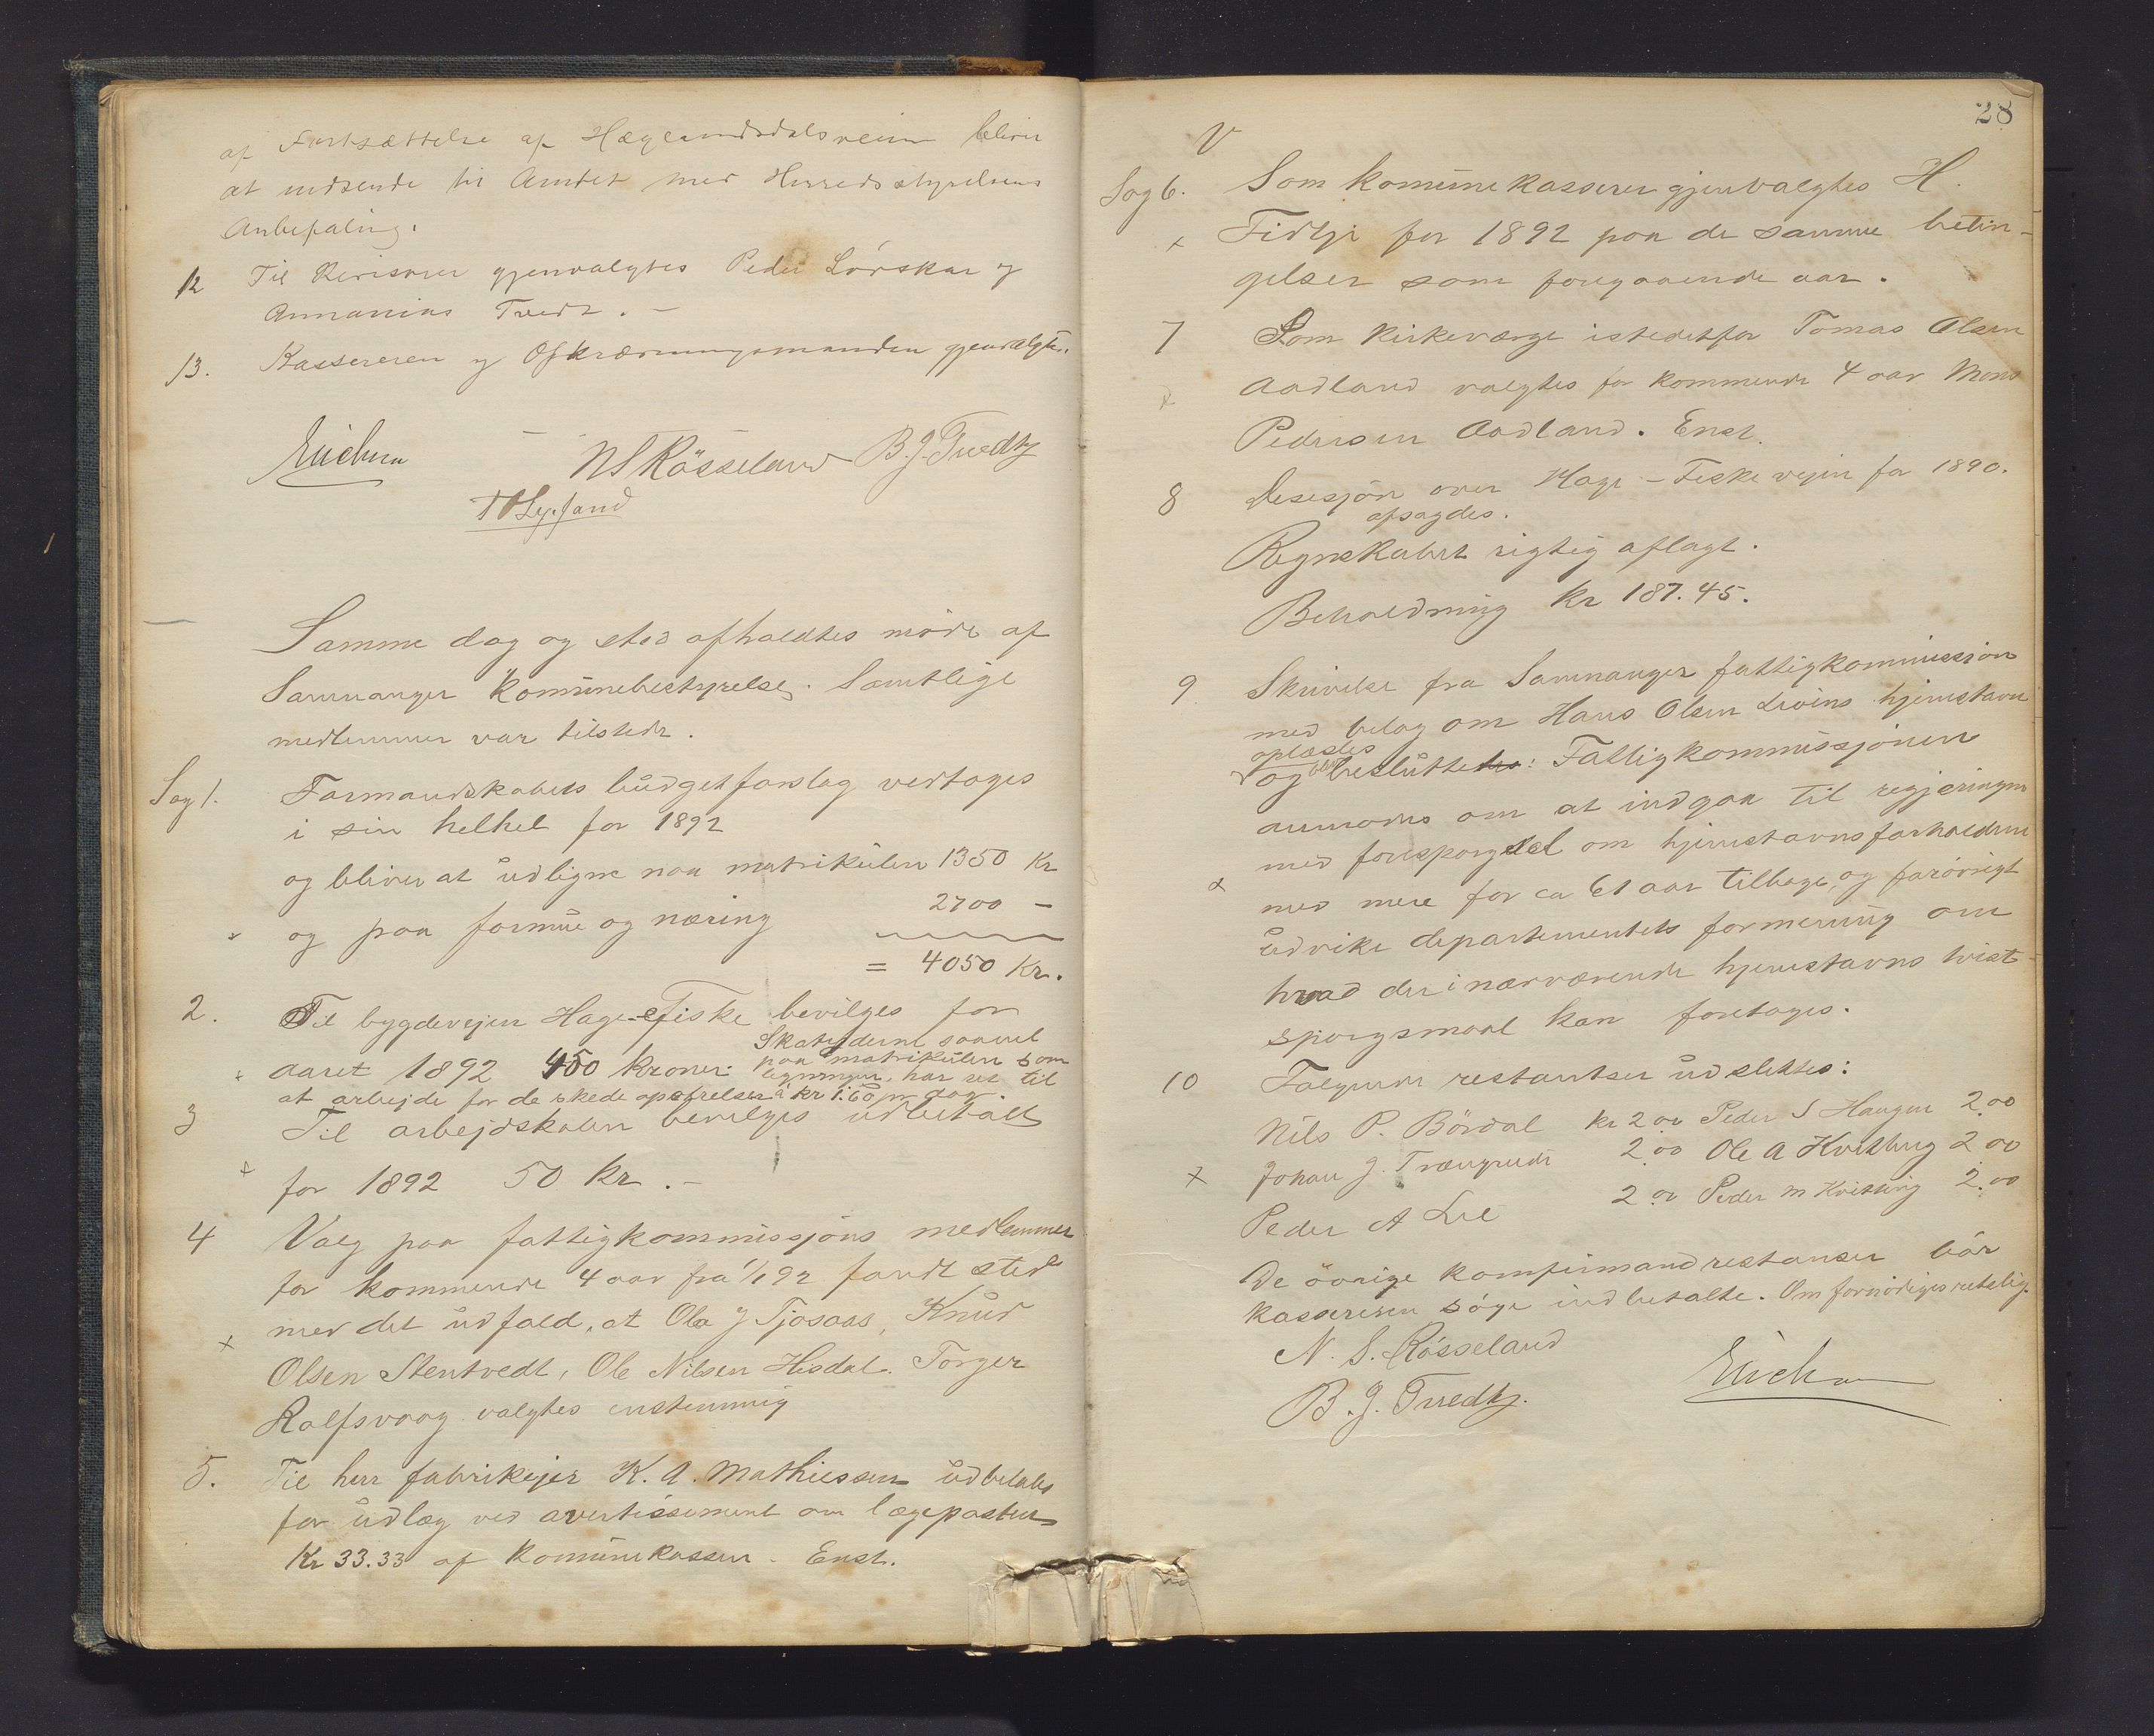 af Fortsættelse af Hæglandsdalsveien bliver
at indsende til Amtet med Herredsstyrelsens
Anbefaling.
12 Til Revisorer gjenvalgtes Peder Lörskar og
Annanias Tvedt. –
13. Kassereren og Opkrævningsmanden gjenvalgtes.
NSRösseland B. J. Tvedt
Samme dag og sted afholdtes møde af
Samnanger komünebestyrelse. Samtlige
medlemmer var tilstede.
Sag 1. Formandskabets büdgetforslag vedtoges
i sin helhet for 1892
og bliver at üdligne paa matrikülen 1350 Kr
og paa formüe og næring 2700 –
= 4050 Kr.
2. Til bygdevejen Hage-Tiske bevilges for
aaret 1892 450 Kroner. Skatyderne saavel
paa matrikülen som
ligningen, har ret til
at arbejde for de skede opofrelser á kr 1.60 pr dag.
3 Til arbejdskolen bevilges üdbetalt
for 1892 50 Kr. –
4 Valg paa fattigkommissjöns medlemmer
for kommende 4 aar fra 1/1 92 fandt sted
med det üdfald, at Ola J Tjosaas, Knüd
Olsen Stentvedt, Ole Nilsen Hisdal. Torger
Rolfsvaag valgtes enstemmig
5. Til herr fabrikejer K. A. Mathiessen üdbetales
for üdlæg ved avertissement om lægeposten
Kr 33.33 af Komünekassen. Enst.
28
V
Sag 6. Som komünekasserer gjenvalgtes H.
x Tidlje for 1892 paa de samme betin-
gelser som foregaaende aar.
7 Som kirkeværge istedetfor Tomas Olsen
x Aadland valgtes for kommende 4 aar Mons
Pedersen Aadland. Enst.
8 Desisjön over Hage – Teske vejen for 1890.
afsagdes.
Regnskabet rigtig aflagt.
Beholdning Kr 187.45.
9 Skrivelse fra Samnanger fattigkommissjon
med bilag om Hans Olsen hjemstavn
oplæstes
og blev beslüttet: Fattigkommissjonen
anmodes om at indgaa til regjeringen
med forespørgsel om hjemstavnsforholdene
x med mere for ca 61 aar tilbage, og forövrigt
üdvike departementets formening om
hvad der i nærværende hjemstavns tvist-
spörgsmaal kan foretages.
10 Følgende restantser üdslettes:
Nils P. Bördal kr 2.00 Peder S Haugen 2.00
x Johan J. Trængereide 2.00 Ole A Kvitting 2 00
Peder A Lie 2.00 Peder M Kvitting 2.00
De övrige kompimandrestanser bör
kassereren söge indbetalte. Om fornödiges retslig.
N. S. Rösseland
B. J. Tvedt.